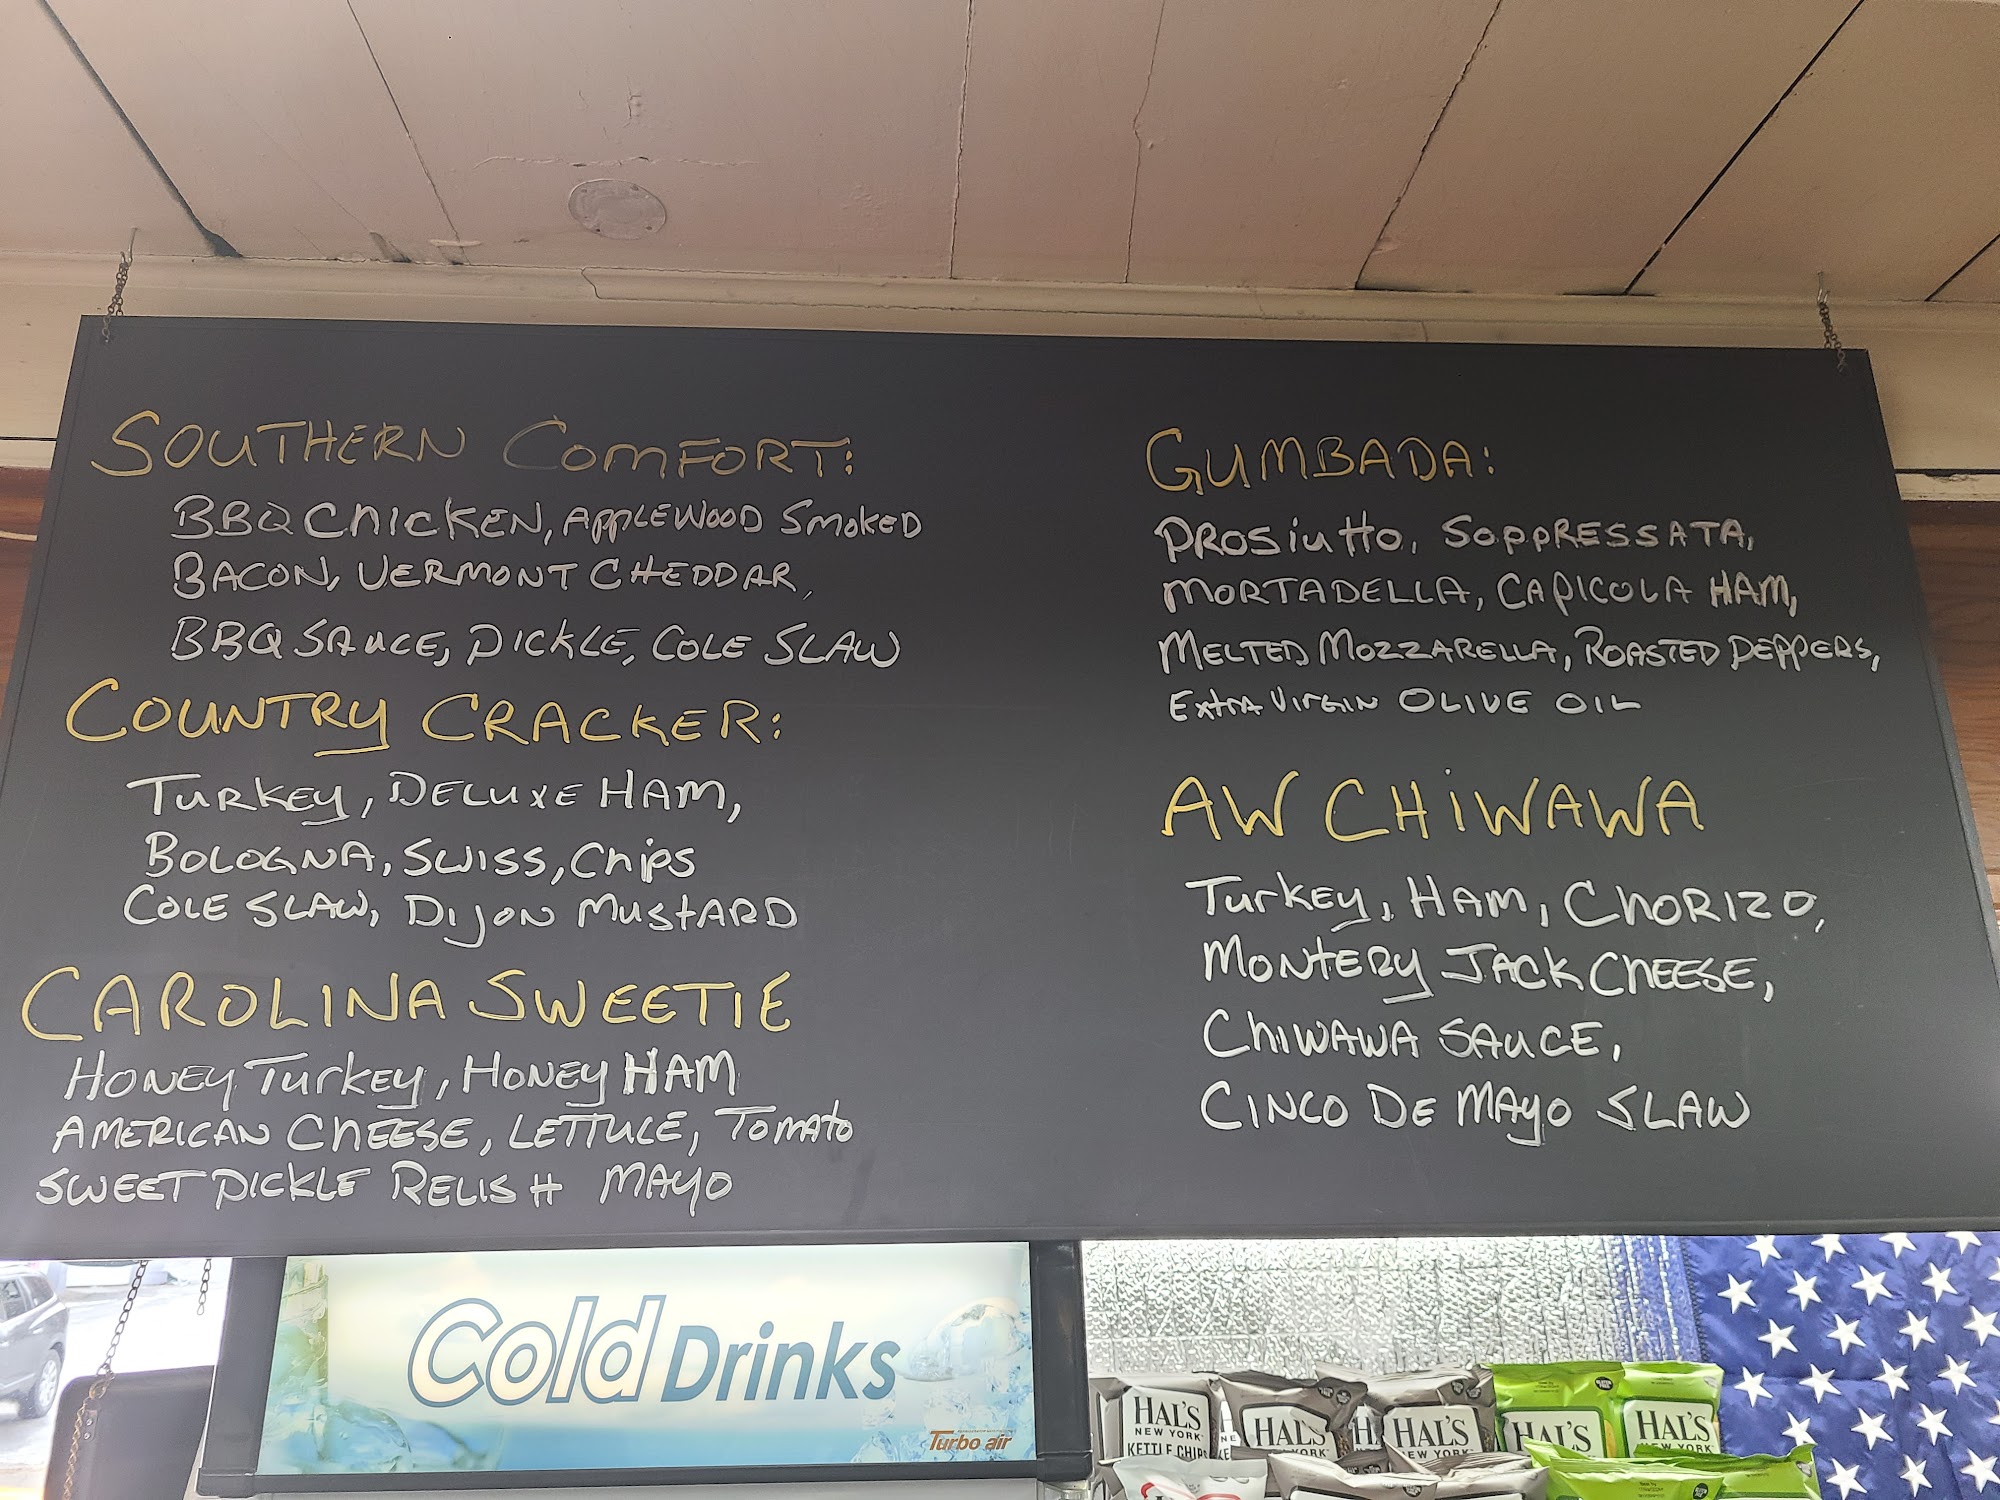 SOUTHERN COMFORT:
BBQ CHICKEN, APPLEWOOD SMOKED
BACON, VERMONT CHEDDAR,
BBQ SAUCE, PICKLE, COLE SLAW
COUNTRY CRACKER:
TURKEY, DELUXE HAM,
BOLOGNA, SWISS, CHIPS
COLE SLAW, DIJON MUSTARD
CAROLINA SWEETIE
HONEY TURKEY, HONEY HAM
AMERICAN CHEESE, LETTUCE, TOMATO
SWEET PICKLE RELISH MAYO
GUMBADA:
PROSIUTTO, SOPPRESSATA,
MORTADELLA, CAPICOLA HAM,
MELTED MOZZARELLA, ROASTED PEPPERS,
EXTRA VIRGIN OLIVE OIL
AW CHIWAWA
TURKEY, HAM, CHORIZO,
MONTERY JACK CHEESE,
CHIWAWA SAUCE,
CINCO DE MAYO SLAW
Cold Drinks
Turbo air
HAL'S
NEW YORK
KETTLE CHIPS
HAL'S
NEW YORK
HAL'S
NEW YORK
HAL'S
HAL'S
NEW YORK